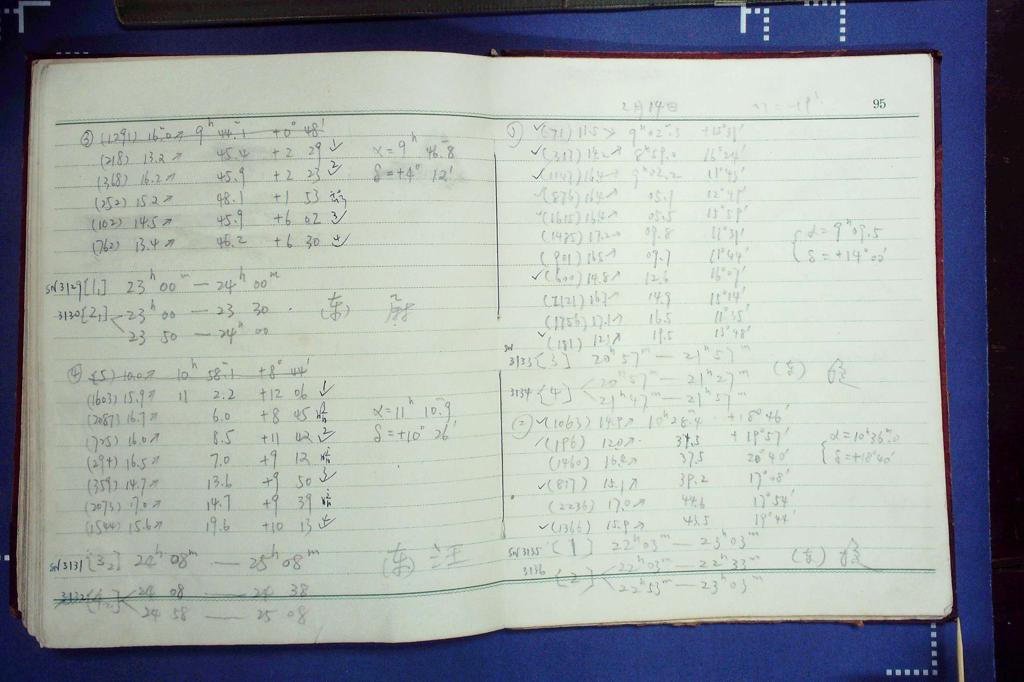 ③ (1291) 16.0↗ 9ʰ 44.ᵐ1 +0° 48′
(218) 13.2↗ 45.4 +2 29 1✓
(368) 16.2↗ 45.9 +2 23 2✓
(252) 15.2↗ 48.1 +1 53
(102) 14.5↗ 45.9 +6 02 3✓
(762) 13.4↗ 46.2 +6 30 4✓
α=9ʰ 46.ᵐ8
δ=+4° 12′
SN3129 [1,] 23ʰ 00ᵐ — 24ʰ 00ᵐ
3130 [2,] 23ʰ 00 — 23 30 . (东)
23 50 — 24ʰ 00
④ (5) 10.0↗ 10ʰ 58.ᵐ1 +8° 44′
(1603) 15.9↗ 11 2.2 +12 06 1✓
(2087) 16.7↗ 6.0 +8 45
(725) 16.0↗ 8.5 +11 42 2✓
(294) 16.5↗ 7.0 +9 12
(359) 14.7↗ 13.6 +9 50 3✓
(2073) 17.0↗ 14.7 +9 39
(1544) 15.6↗ 19.6 +10 13 4✓
α=11ʰ 10.ᵐ9
δ=+10° 26′
SN3131 [3₂] 24ʰ 08ᵐ — 25ʰ 08ᵐ (东) 汪
3132 [4₂] 24 08 — 24 38
24 58 — 25 08
2月14日
95
① ✓(71) 11.5↗ 9ʰ 02.ᵐ3 +15°31′
✓(313) 14.2↗ 8ʰ59.0 16°24′
✓(1147) 16.4↗ 9ʰ02.2 11°43′
(876) 16.4↗ 05.1 12°49′
(1615) 16.4↗ 05.5 15°59′
(1485) 17.2↗ 09.8 11°31′
(901) 16.5↗ 09.7 11°44′
✓(600) 14.8↗ 12.6 16°07′
(1121) 16.7↗ 14.9 15°14′
(1756) 17.1↗ 16.5 11°35′
✓(181) 12.1↗ 19.5 15°48′
α=9ʰ09.5
δ=+14°00′
SN 3133 [3] 20ʰ57ᵐ — 21ʰ57ᵐ
3134 [4] 20ʰ57ᵐ — 21ʰ27ᵐ
21ʰ47ᵐ — 21ʰ57ᵐ
② ✓(1063) 14.9↗ 10ʰ28.ᵐ4 +18°46′
✓(196) 12.0↗ 37.5 +19°57′
(1460) 16.2↗ 37.5 20°40′
✓(817) 15.1↗ 39.2 17°08′
(2236) 17.0↗ 44.6 17°54′
✓(1366) 15.9↗ 43.5 19°44′
α=10ʰ36.ᵐ0
δ=+18°40′
SN3135 [1] 22ʰ03ᵐ — 23ʰ03ᵐ
3136 [2] 22ʰ03ᵐ — 22ʰ33ᵐ
22ʰ53ᵐ — 23ʰ03ᵐ